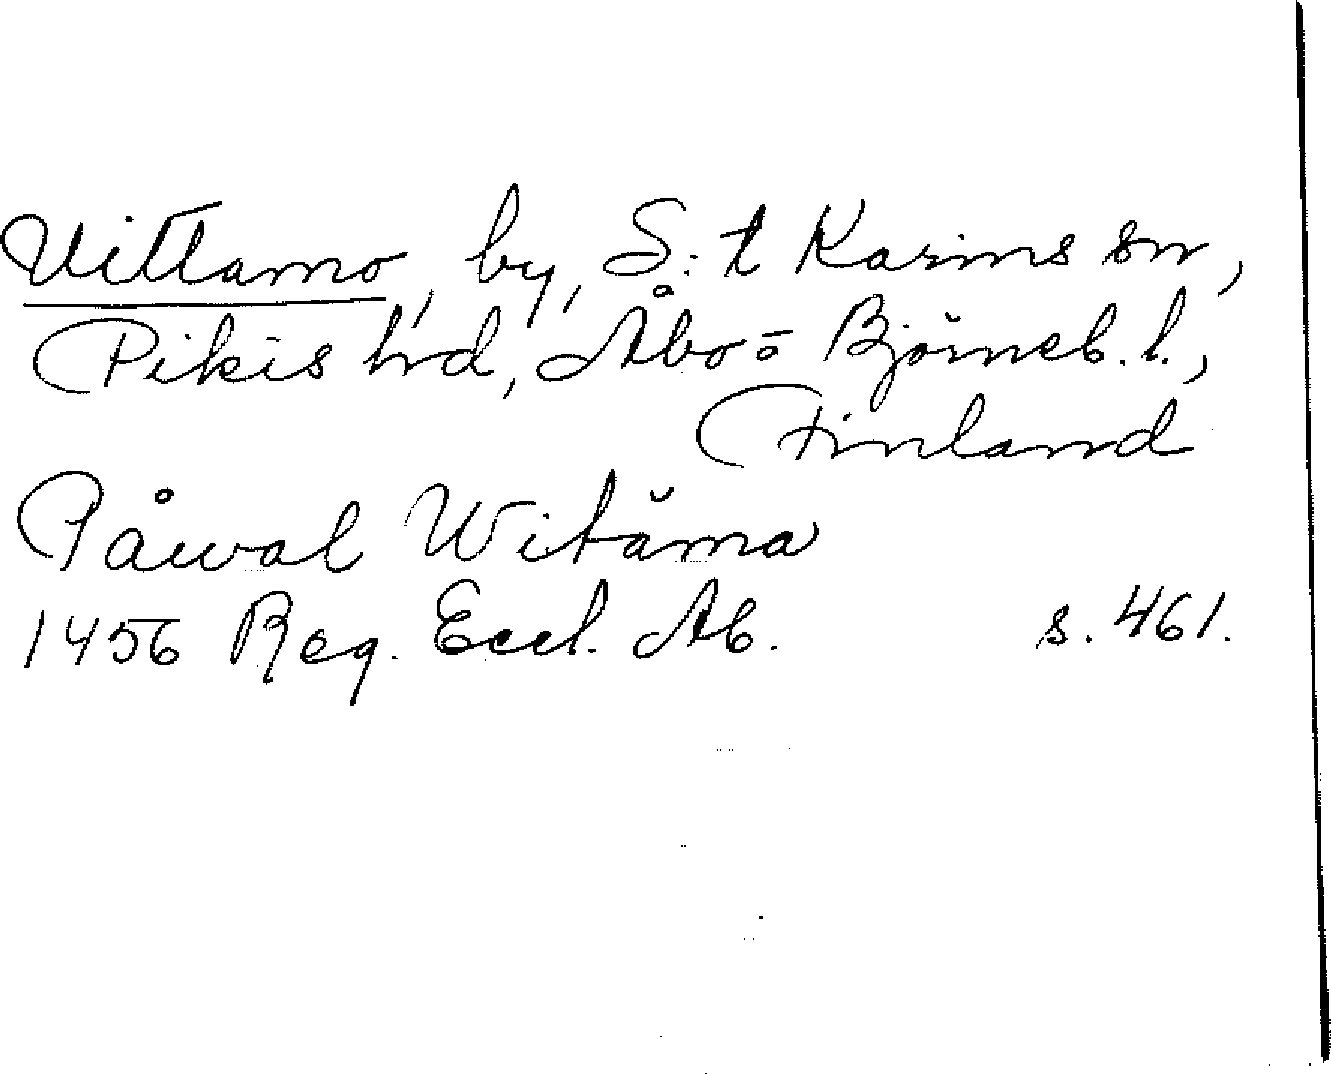 Vittamo, by, S:t Karins sn,
Pikis hrd, Åbo- o Björneb. l.,
Finland
Påwal Witäma
1456 Reg. Eccl. Ab. s. 461.